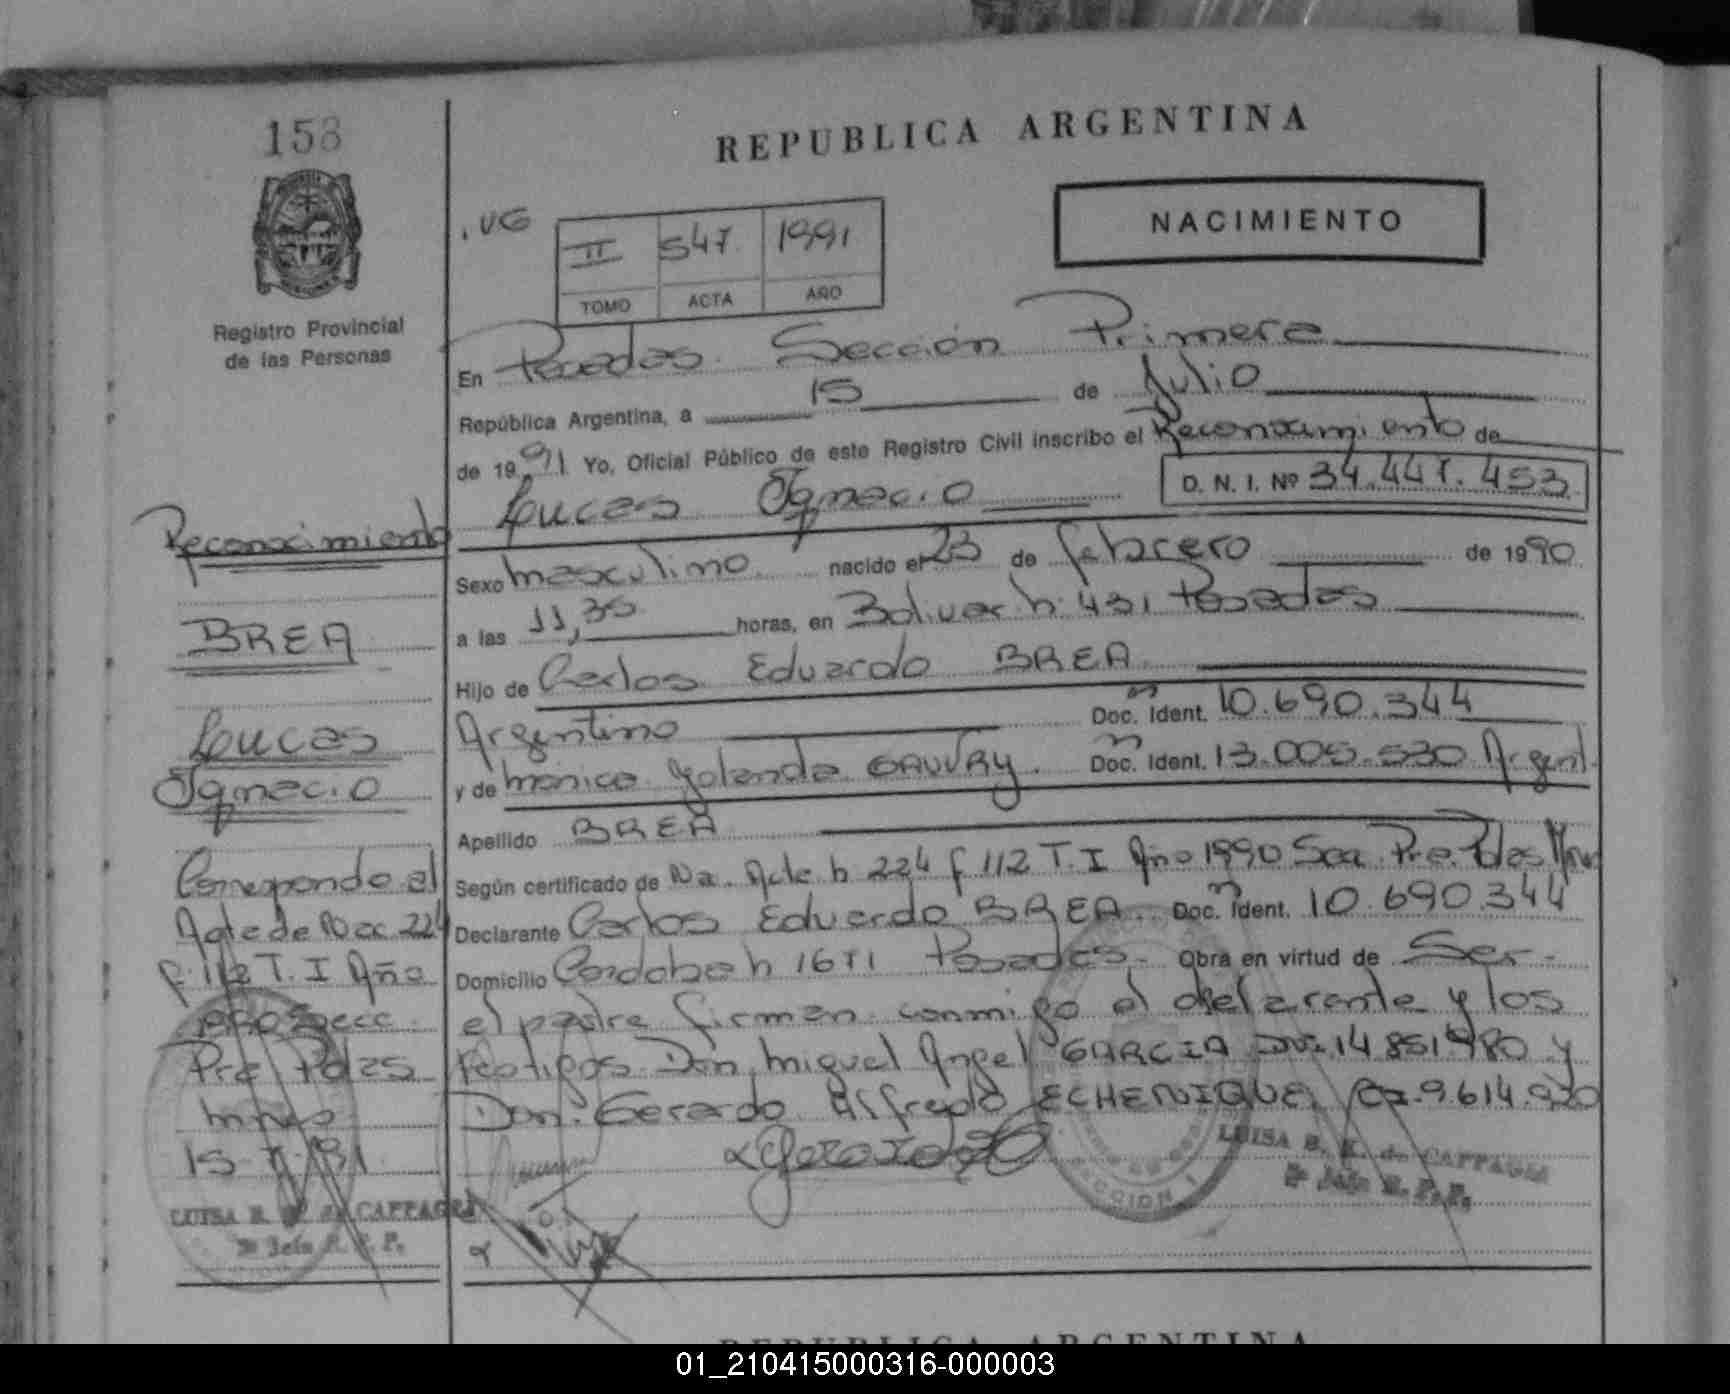 158
REPUBLICA ARGENTINA
NACIMIENTO
. VG
II 547 1991
TOMO ACTA AÑO
Registro Provincial
de las Personas
En Posadas Sección Primera
República Argentina, a 15 de Julio
de 1991 Yo, Oficial Público de este Registro Civil inscribo el Reconocimiento de
D. N. I. Nº 34.447.453
Loucas Ignacio
Sexo masculino nacido el 23 de febrero de 1990
a las 11,35 horas, en Bolivar n. 431 Posadas
Hijo de Carlos Eduardo BREA
Argentino Doc. Ident. 10.690.344
y de Monica Yolanda GAUVRY. Doc. Ident. 13.005.530 Argent.
Apellido BREA
Según certificado de Na. Acta n 224 f 112 T. I Año 1990 Sec. Pra. Pdas Mnes
Declarante Carlos Eduardo BREA. Doc. Ident. 10.690.344
Domicilio Cordoba n 1671 Posadas. Obra en virtud de Ser
el padre firman conmigo el declarante y los
testigos Don Miguel Angel GARCIA DNI. 14.851.980 y
Don: Gerardo Alfredo ECHENIQUE, 9.614.920
LUISA R. K. de CAFFAGNI
2º Jefe R. P. P.
Reconocimiento
BREA
Loucas
Ignacio
Corresponde al
Acta de Nac 224
f. 112 T. I Año
1990 Secc.
Pra Pdas
Mnes
15-7-91
LUISA R. K. de CAFFAGNI
2º Jefe R. P. P.
SECCION 1
REPUBLICA ARGENTINA
01_210415000316-000003